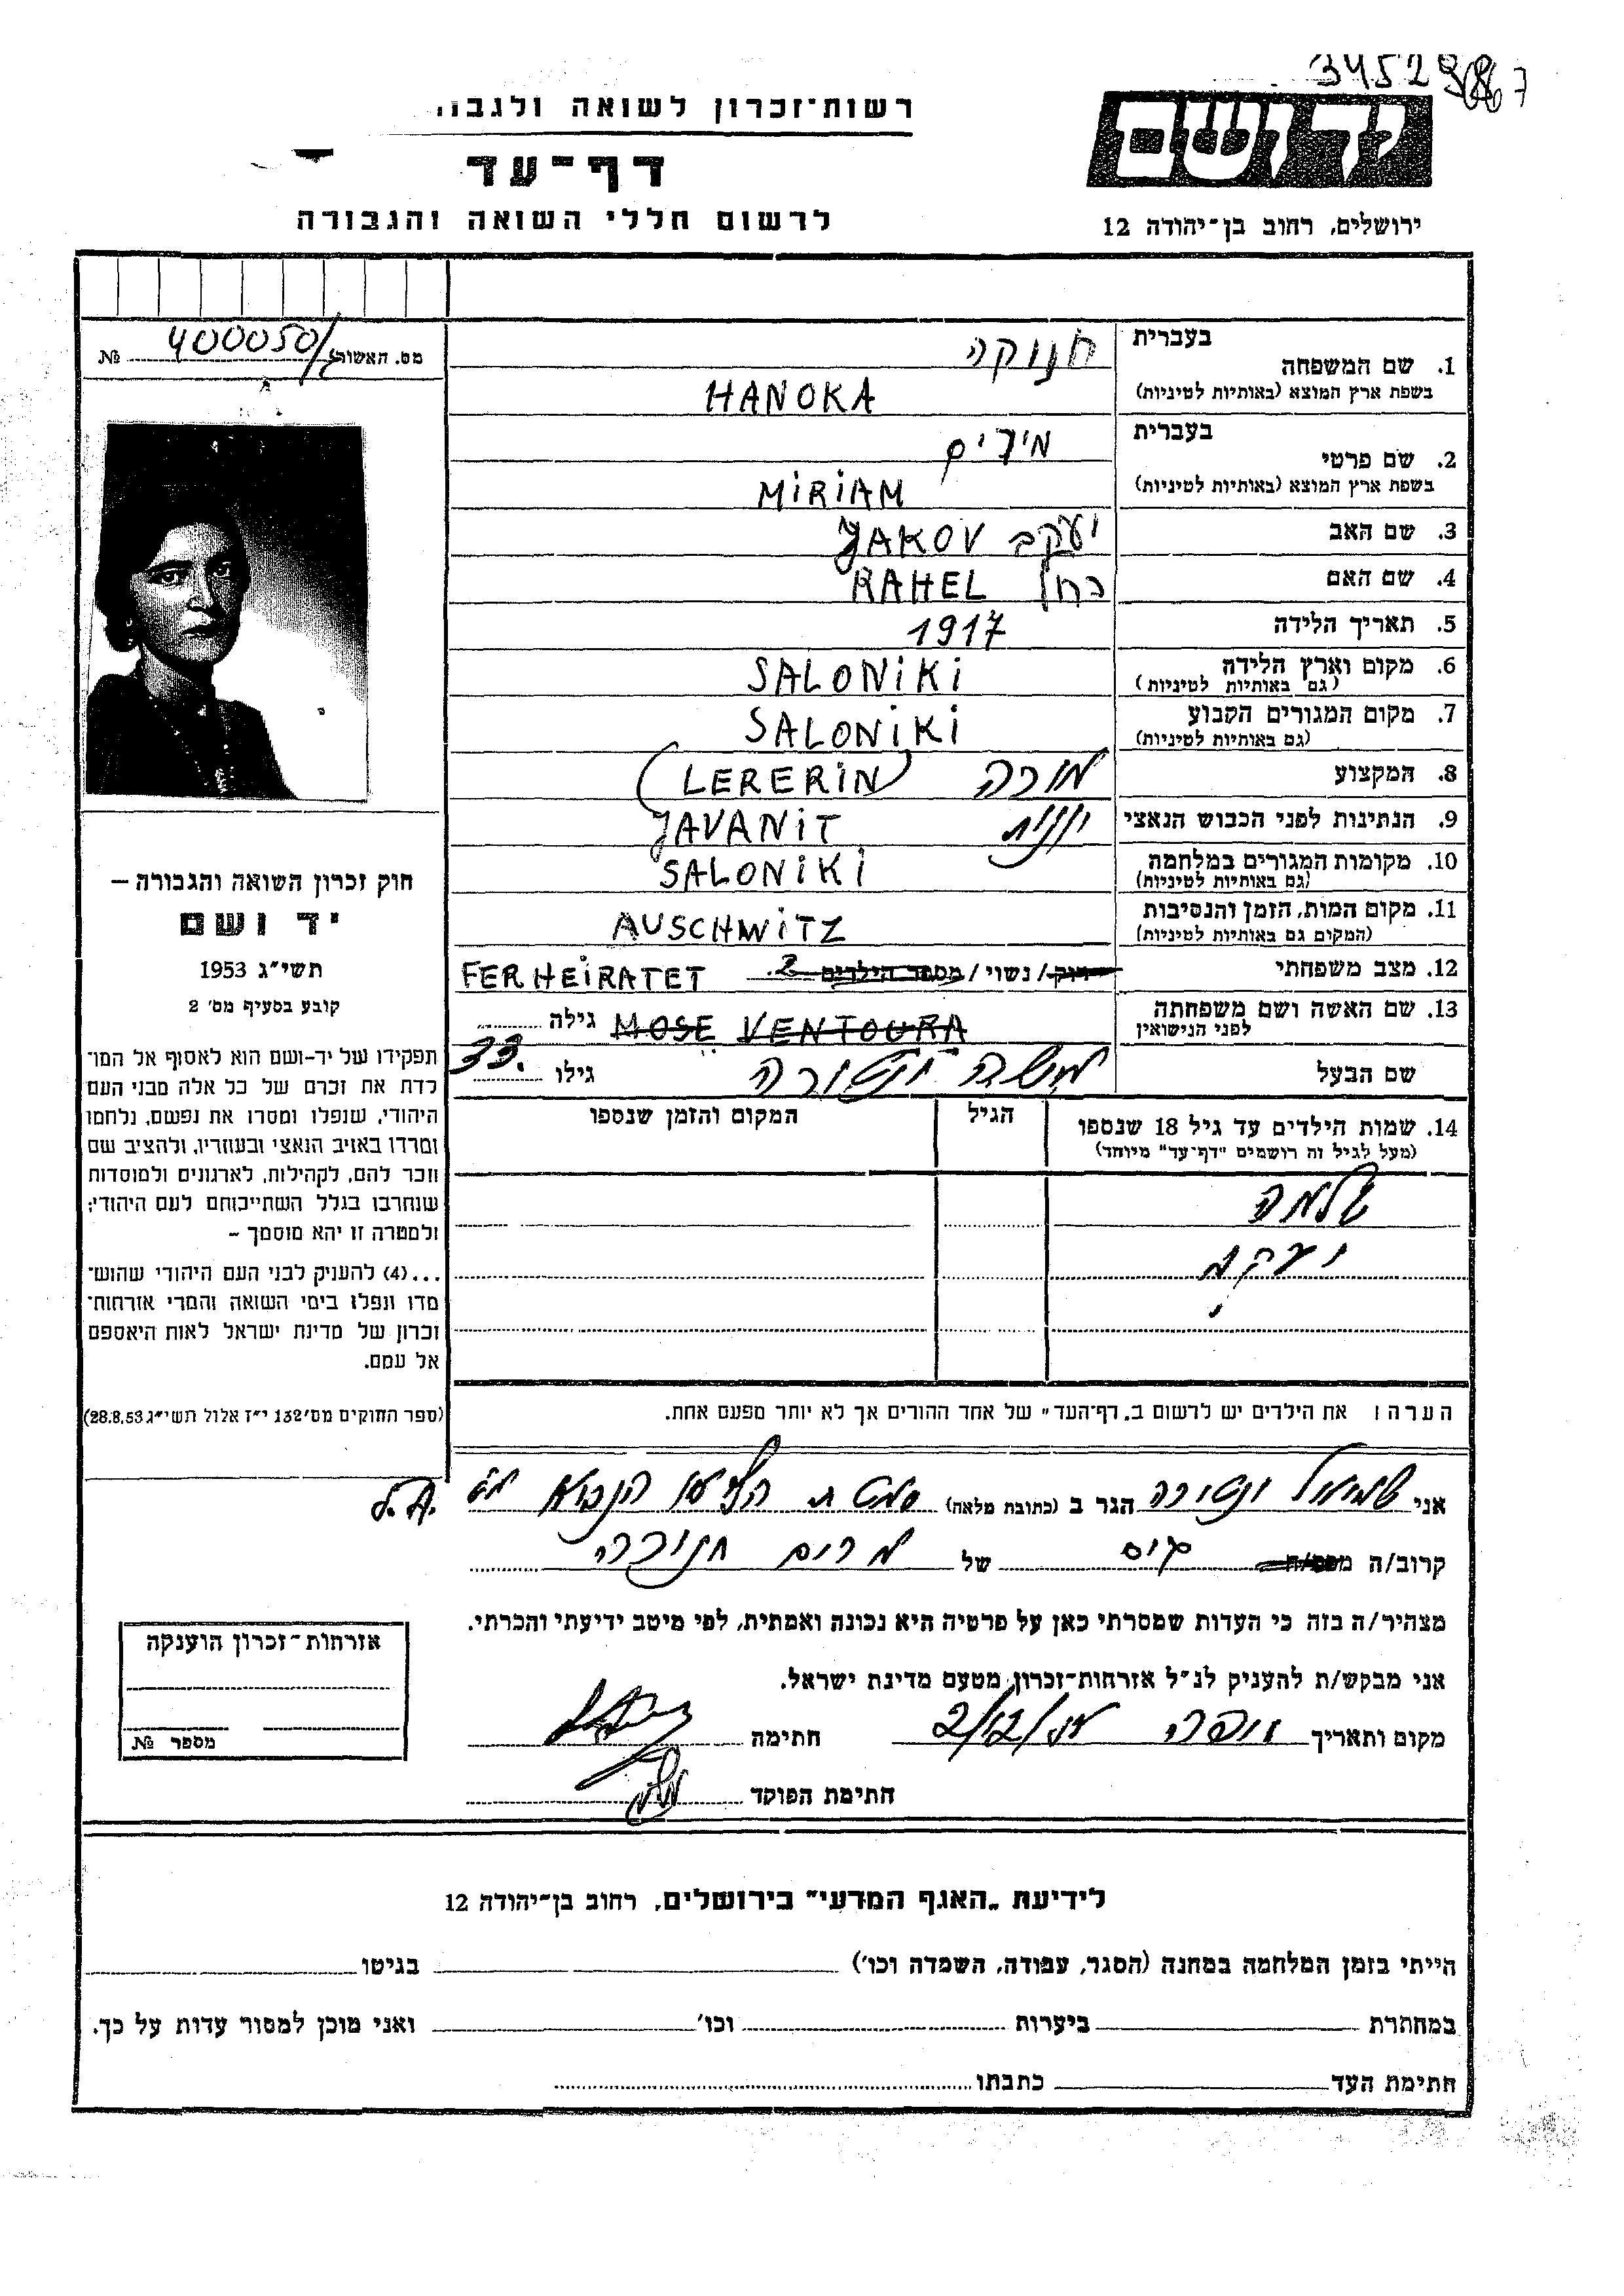 345298867
רשות־זכרון לשואה ולגבו
דף־עד
לרשום חללי השואה והגבורה
יד ושם
ירושלים, רחוב בן־יהודה 12
מס. האשור 400050/ №
בעברית חנוקה
1. שם המשפחה
בשפת ארץ המוצא (באותיות לטיניות) HANOKA
בעברית מירים
2. שם פרטי
בשפת ארץ המוצא (באותיות לטיניות) MIRIAM
3. שם האב יעקב JAKOV
4. שם האם רחל RAHEL
5. תאריך הלידה 1917
6. מקום וארץ הלידה SALONIKI
(גם באותיות לטיניות)
7. מקום המגורים הקבוע SALONIKI
(גם באותיות לטיניות)
8. המקצוע מורה (LERERIN)
9. הנתינות לפני הכבוש הנאצי יונית JAVANIT
10. מקומות המגורים במלחמה SALONIKI
(גם באותיות לטיניות)
11. מקום המות, הזמן והנסיבות AUSCHWITZ
(המקום גם באותיות לטיניות)
12. מצב משפחתי רווק/נשוי/מספר הילדים 2. FERHEIRATET
13. שם האשה ושם משפחתה MOSE VENTOURA גילה
לפני הנישואין
שם הבעל משה ונטורה גילו 33.
14. שמות הילדים עד גיל 18 שנספו הגיל המקום והזמן שנספו
(מעל לגיל זה רושמים "דף־עד" מיוחד)
שלמה
יעקב
הערה: את הילדים יש לרשום ב„דף־העד" של אחד ההורים אך לא יותר מפעם אחת.
חוק זכרון השואה והגבורה –
יד ושם
תשי"ג 1953
קובע בסעיף מס' 2
תפקידו של יד-ושם הוא לאסוף אל המו־
לדת את זכרם של כל אלה מבני העם
היהודי, שנפלו ומסרו את נפשם, נלחמו
ומרדו באויב הנאצי ובעוזריו, ולהציב שם
וזכר להם, לקהילות, לארגונים ולמוסדות
שנחרבו בגלל השתייכותם לעם היהודי;
ולמטרה זו יהא מוסמך –
...(4) להעניק לבני העם היהודי שהוש־
מדו ונפלו בימי השואה והמרי אזרחות־
זכרון של מדינת ישראל לאות היאספם
אל עמם.
(ספר החוקים מס' 132 י"ז אלול תשי"ג 28.8.53)
אני שמואל ונטורה הגר ב (כתובת מלאה)
קרוב/ה מכר/ה גיס של מרים חנוכה
מצהיר/ה בזה כי העדות שמסרתי כאן על פרטיה היא נכונה ואמתית, לפי מיטב ידיעתי והכרתי.
אני מבקש/ת להעניק לנ"ל אזרחות־זכרון מטעם מדינת ישראל.
מקום ותאריך חיפה חתימה
חתימת הפוקד
אזרחות־זכרון הוענקה
מספר №
לידיעת „האגף המדעי" בירושלים, רחוב בן־יהודה 12
הייתי בזמן המלחמה במחנה (הסגר, עבודה, השמדה וכו') בגיטו
במחתרת ביערות וכו' ואני מוכן למסור עדות על כך.
חתימת העד כתבתו